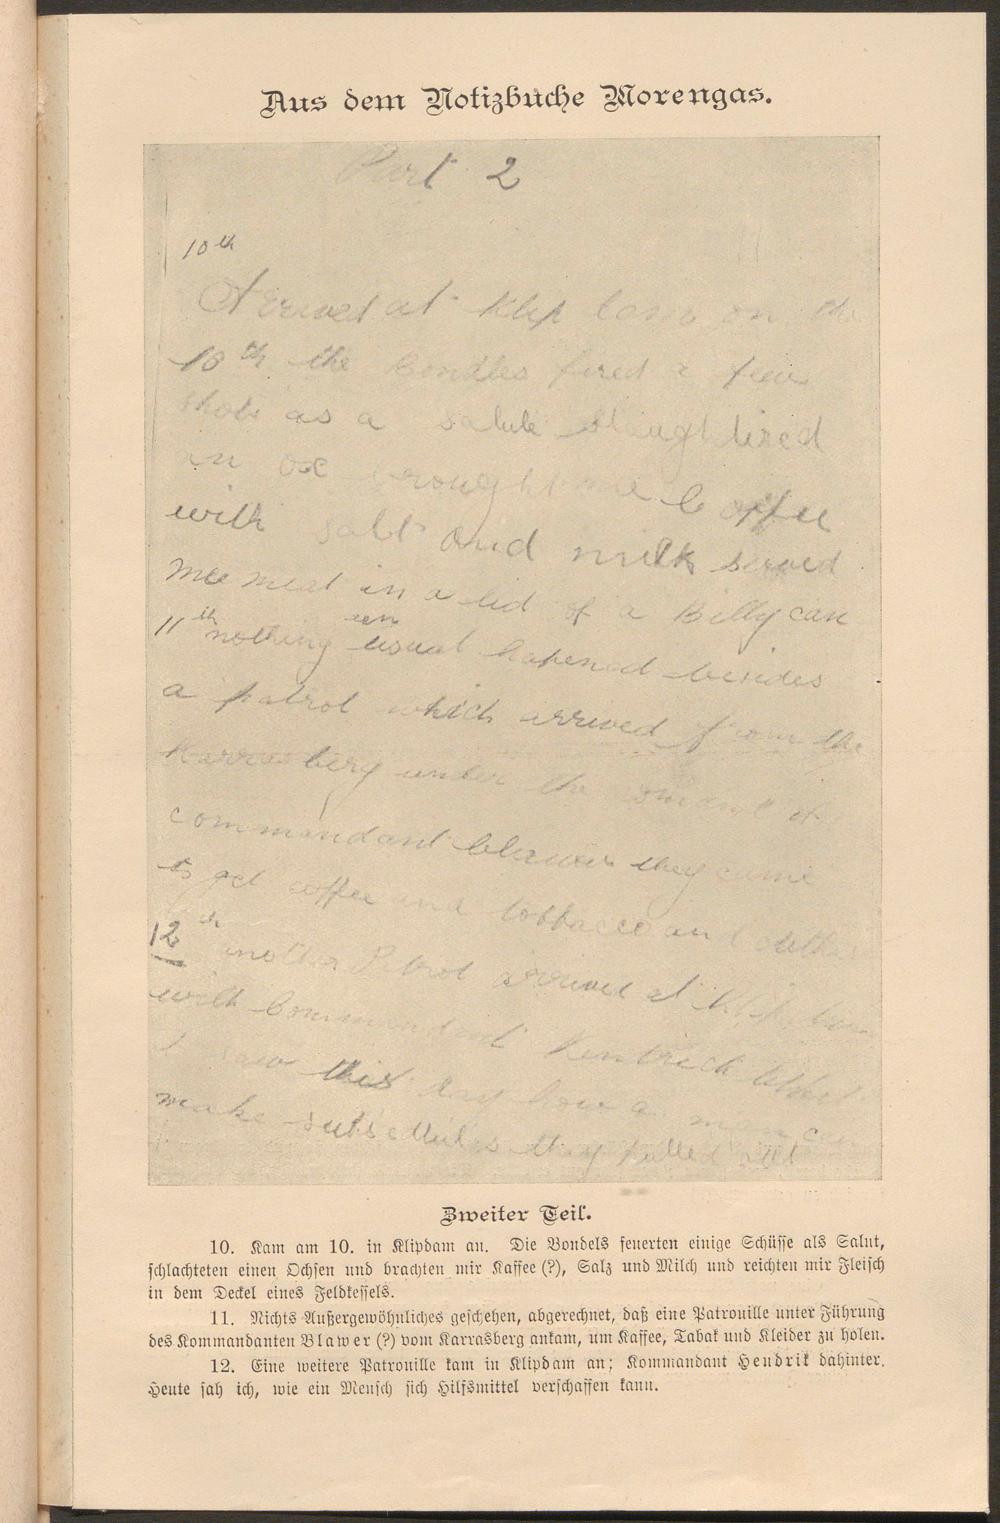 Aus dem Notizbuche Morengas.
Part 2
10th
Arrived at Klip Dam on the
10th the bondles fired a few
shots as a salute slaughtired
an ox brought me Coffee
with salt and milk served
mee meat in a lid of a Billy can
11th nothing un usual hapened besides
a patrol which arrived from the
Karrasberg under the of
commandant they came
to get coffee and tobbacco and
12th another Patrol arrived at Klip
with Commandant Hendrick
I saw this day how a man can
make they pulled
Zweiter Teil.
10. Kam am 10. in Klipdam an. Die Bondels feuerten einige Schüsse als Salut,
schlachteten einen Ochsen und brachten mir Kaffee (?), Salz und Milch und reichten mir Fleisch
in dem Deckel eines Feldkessels.
11. Nichts Außergewöhnliches geschehen, abgerechnet, daß eine Patrouille unter Führung
des Kommandanten Blawer (?) vom Karrasberg ankam, um Kaffee, Tabak und Kleider zu holen.
12. Eine weitere Patrouille kam in Klipdam an; Kommandant Hendrik dahinter.
Heute sah ich, wie ein Mensch sich Hilfsmittel verschaffen kann.